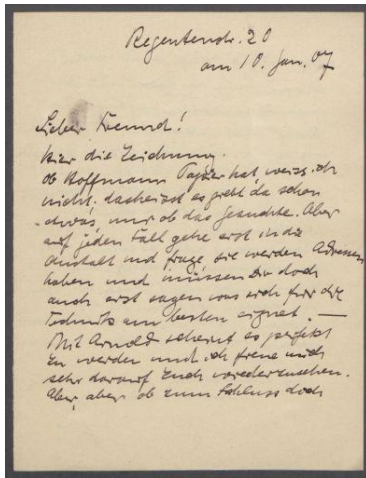 Regentenstr. 20
am 10. Jan. 07
Lieber Freund!
Hier die Zeichnung.
Ob Hoffmann Papier hat weiss ich
nicht, das heisst es giebt da schon
etwas, nur ob das gesuchte. Aber
auf jeden Fall gehe erst in die
Anstalt und frage sie werden Adressen
haben und müssen Dir doch
auch erst sagen was sich für die
Technik am besten eignet. —
Mit Arnold scheint es perfekt
zu werden und ich freue mich
sehr darauf Euch wiederzusehen.
Aber, aber ob zum Schluss doch